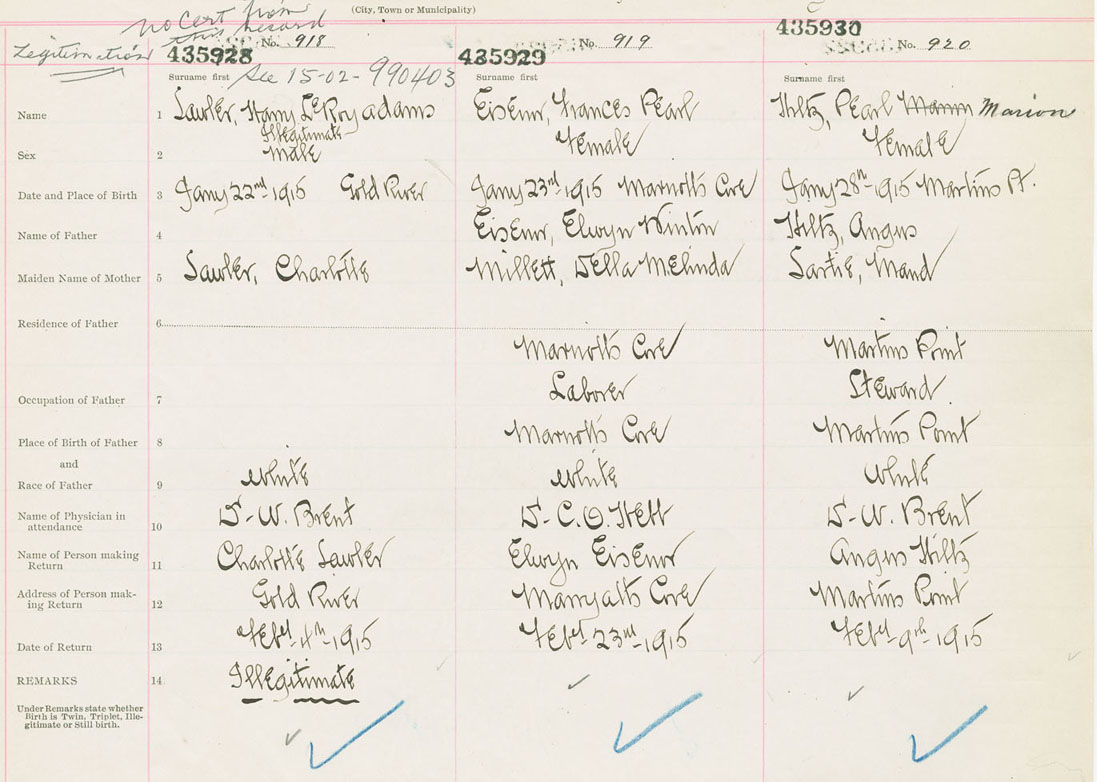 (City, Town or Municipality)
no Cert from
this record
Legitimation
No. 918
435928
See 15-02-990403
No. 919
435929
435930
No. 920
Surname first
Surname first
Surname first
Name 1 Lawler, Harry LeRoy adams
Eisenor, Frances Pearl
Hiltz, Pearl Marion
Illegitimate
Sex 2 Male
Female
Female
Date and Place of Birth 3 Jany 22nd 1915 Gold River
Jany 23rd 1915 Marriotts Cove
Jany 28th 1915 Martins Pt.
Name of Father 4
Eisenor, Elwyn Winton
Hiltz, Angus
Maiden Name of Mother 5 Lawler, Charlotte
Millett, Della Melinda
Maud
Residence of Father 6
Marriotts Cove
Martins Point
Occupation of Father 7
Laborer
Steward.
Place of Birth of Father 8
Marriotts Cove
Martins Point
and
Race of Father 9 White
White
White
Name of Physician in
attendance 10 D-W. Brent
D-C.O. Hebb
D-W. Brent
Name of Person making
Return 11 Charlotte Lawler
Elwyn Eisenor
Angus Hiltz
Address of Person mak-
ing Return 12 Gold River
Marryatts Cove
Martins Point
Date of Return 13 Feby 4th-1915
Feby 23rd-1915
Feby-9th-1915
REMARKS 14 Illegitimate
Under Remarks state whether
Birth is Twin, Triplet, Ille-
gitimate or Still birth.